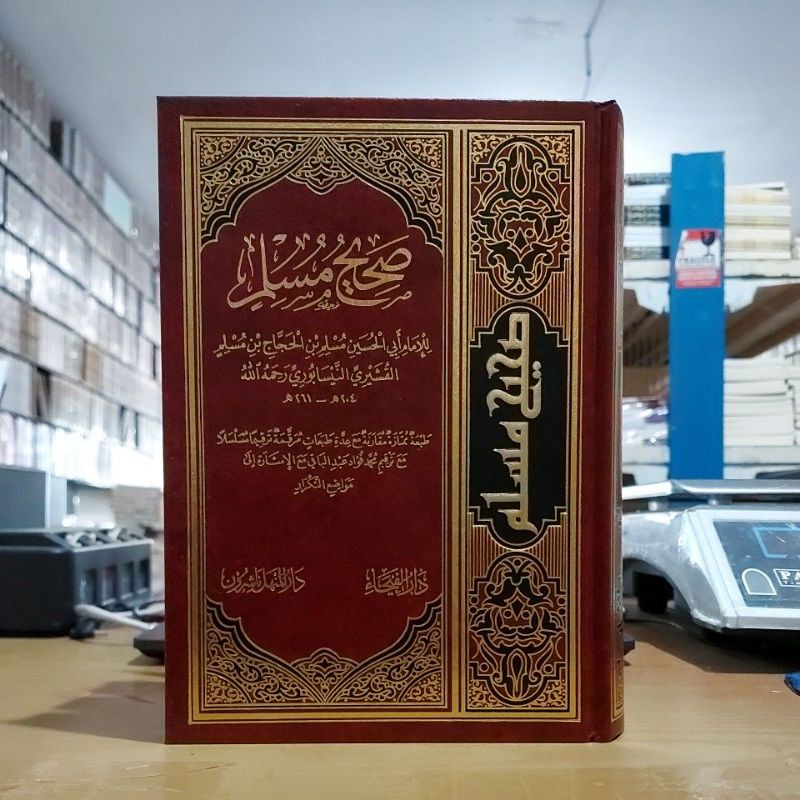 صَحِيحُ مُسْلِمٍ
لِلْإِمَامِ أَبِي الْحُسَيْنِ مُسْلِمِ بْنِ الْحَجَّاجِ بْنِ مُسْلِمٍ
القُشَيْرِيِّ النَّيْسَابُورِيِّ رَحِمَهُ اللهُ
٢٠٤هـ - ٢٦١هـ
طَبْعَةٌ مُمْتَازَةٌ مُقَارَنَةٌ مَعَ عِدَّةِ طَبَعَاتٍ مُرَقَّمَةٌ تَرْقِيمًا مُسَلْسَلًا
مَعَ تَرْقِيمِ مُحَمَّد فُؤَاد عَبْدِ الْبَاقِي مَعَ الْإِشَارَةِ إِلَى
مَوَاضِعِ التَّكْرَارِ
دَارُ الْفَيْحَاءِ
دَارُ الْمَنْهَلِ نَاشِرُونَ
صحيح مسلم